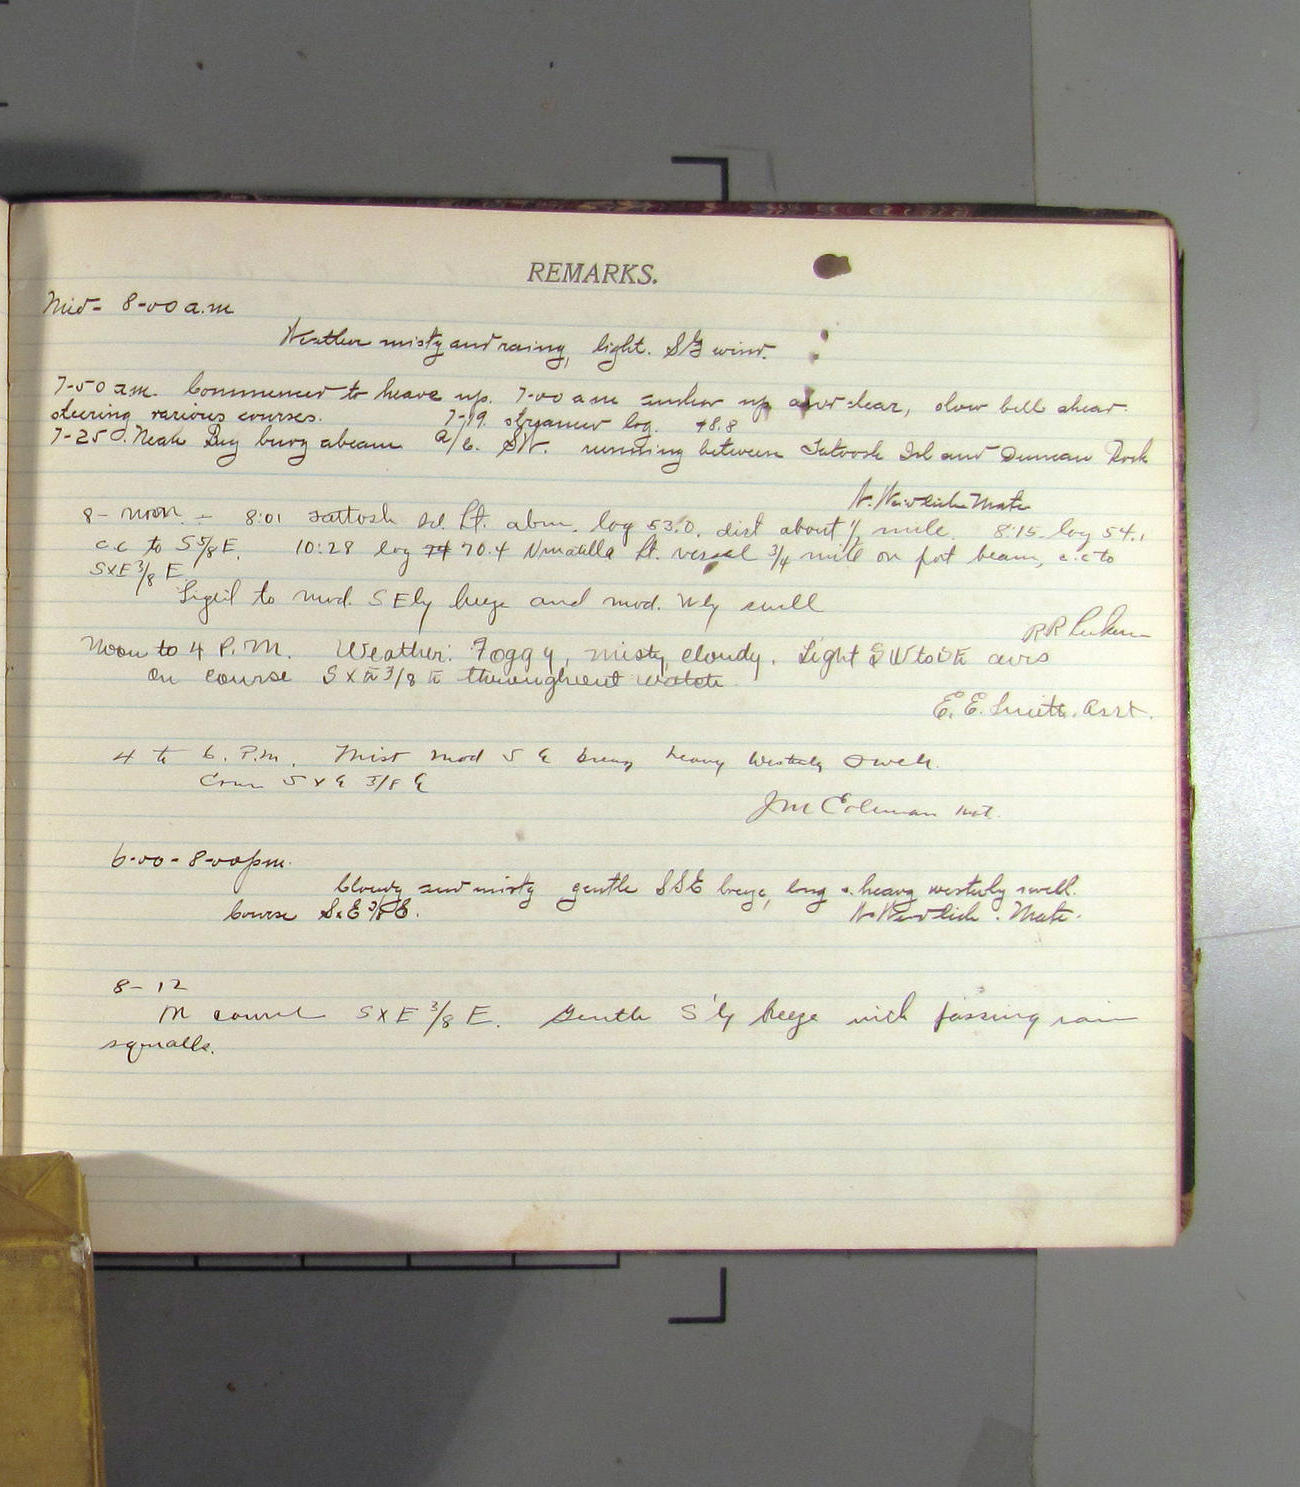 REMARKS.
Mid- 8-00 a.m
Weather misty and raining, light. SE wind.
7-50 a.m. Commenced to heave up. 7-00 a m anchor up and clear, slow bell ahead.
steering various courses. 7-19. streamed log. 48.8
7-25. Neah Bay buoy abeam a/c. SW. running between Tatoosh Isl and Duncan Rock
Mate
8- noon - 8:01 Tattosh Isl. Lt. abm. log 53.0. dist about ½ mile. 8:15 log 54.1
c.c to S5/8E. 10:28 log 70.4 Umatilla Lt. vessel 3/4 mile on port beam, c.c to
SxE 3/8 E
Light to mod. SEly breeze and mod. Wly swell
R R
Noon to 4 P.M. Weather: Foggy, misty, cloudy. Light SW to SE airs
On course SxE 3/8 E throughout watch
E. E. Smith. Asst.
4 to 6. P.m. Mist mod S E breeze heavy Westerly Swell.
Course S x E 3/8 E
J M Coleman
6-00 - 8-00 p.m.
Cloudy and misty gentle SSE breeze, long & heavy westerly swell.
Course SxE 3/8 E. Mate.
8- 12
On course SxE 3/8 E. Gentle S'ly breeze with passing rain
squalls.